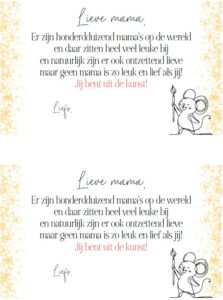 Lieve mama,
Er zijn honderdduizend mama's op de wereld
en daar zitten heel veel leuke bij
en natuurlijk zijn er ook ontzettend lieve
maar geen mama is zo leuk en lief als jij!
Jij bent uit de kunst!
Liefs,
Lieve mama,
Er zijn honderdduizend mama's op de wereld
en daar zitten heel veel leuke bij
en natuurlijk zijn er ook ontzettend lieve
maar geen mama is zo leuk en lief als jij!
Jij bent uit de kunst!
Liefs,